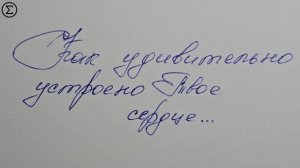 Σ
Как удивительно
устроено Твое
сердце...